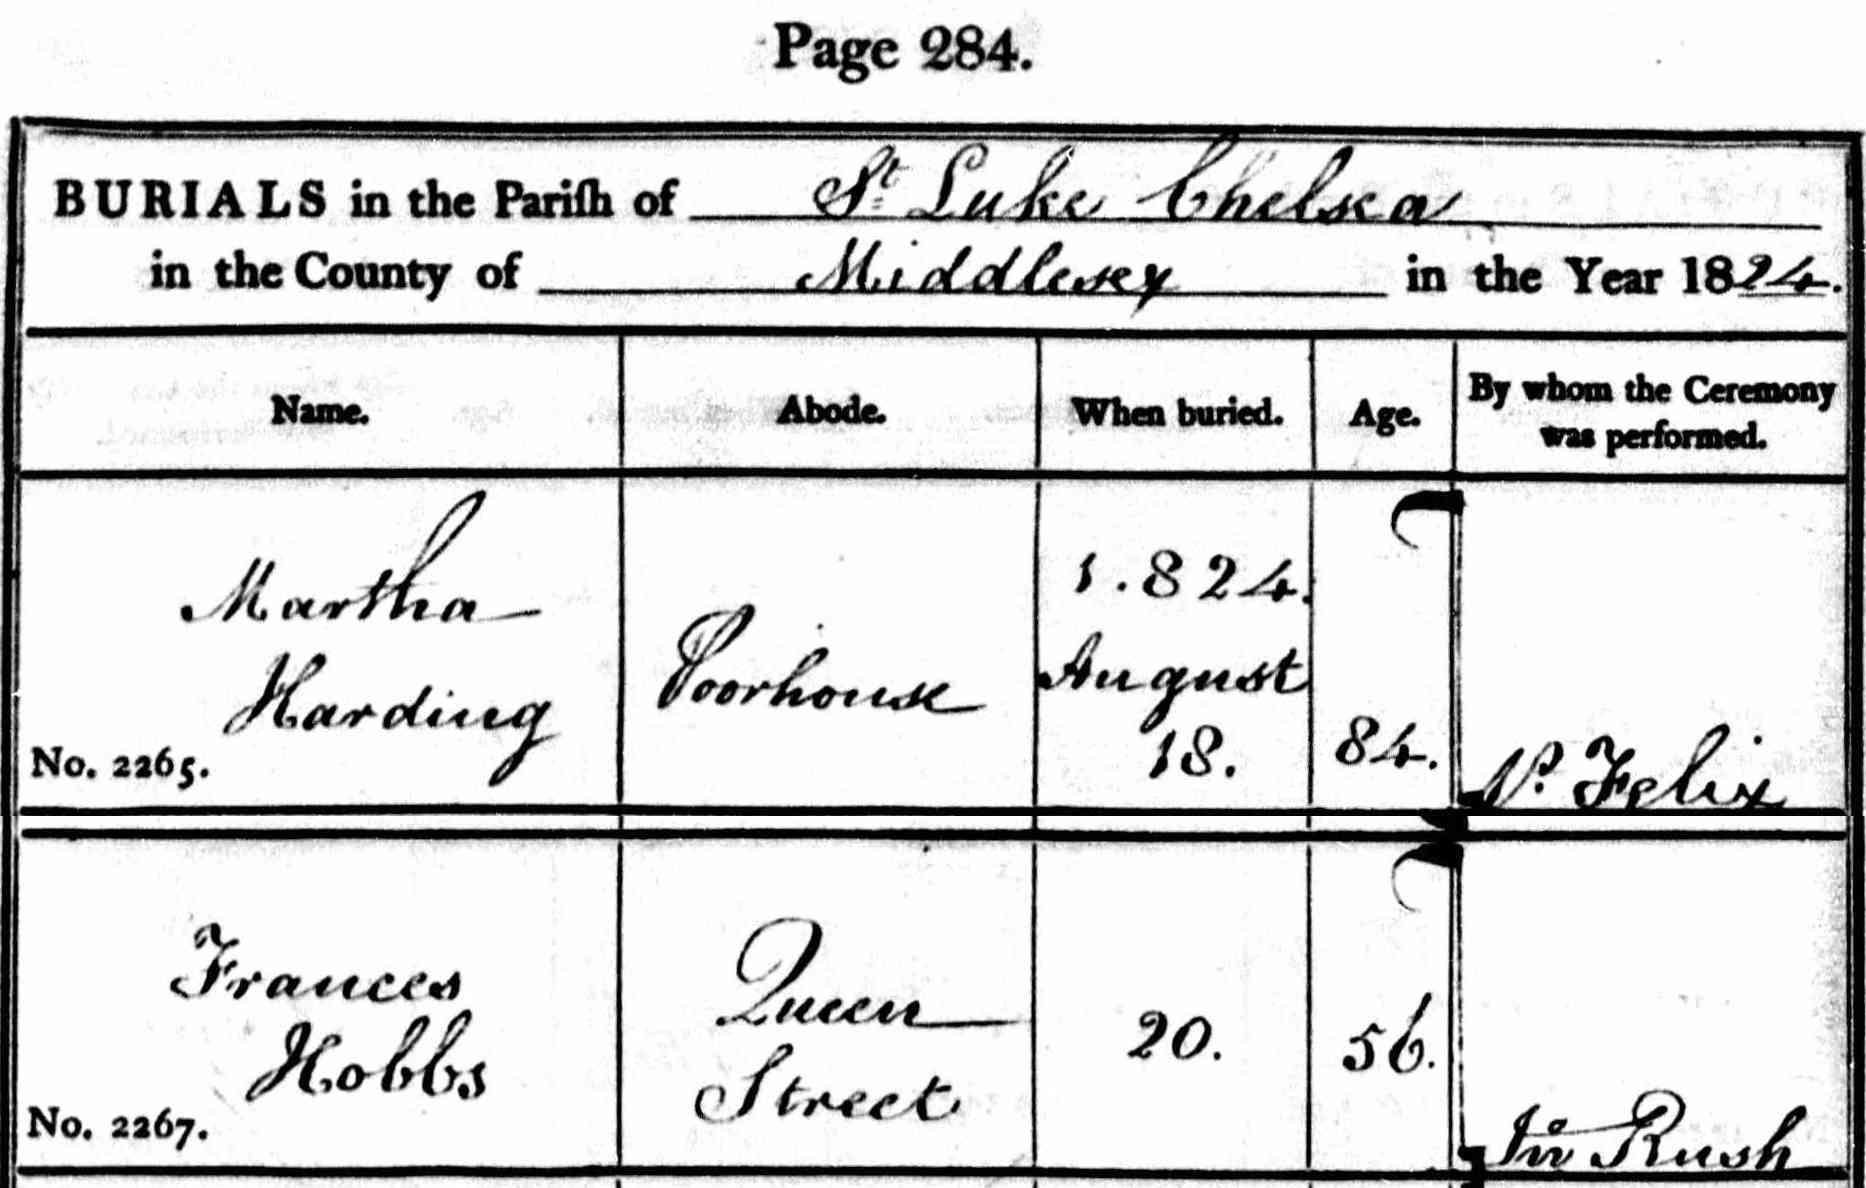 Page 284.
BURIALS in the Pariſh of St Luke Chelsea
in the County of Middlesex in the Year 1824.
Name. Abode. When buried. Age. By whom the Ceremony was performed.
Martha
Harding
No. 2265.
Poorhouse
1.824.
August
18.
84.
P. Felix
Frances
Hobbs
No. 2267.
Queen
Street
20.
56.
Rush